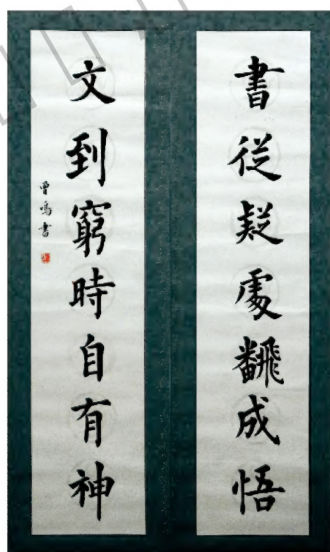 書從疑處翻成悟
文到窮時自有神
曾鳴書